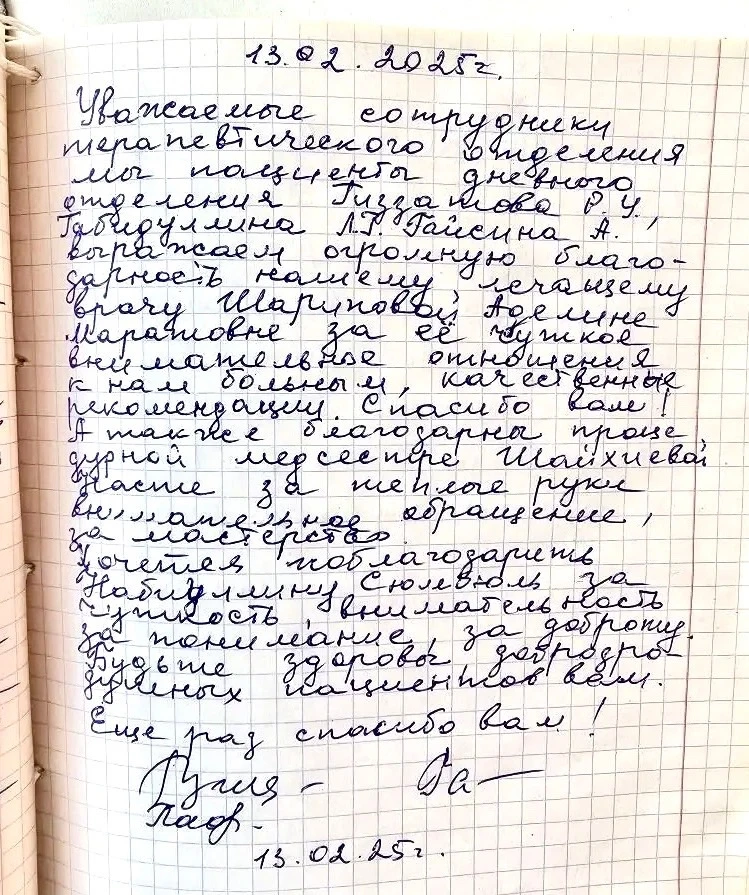 13.02.2025г.
Уважаемые сотрудники
терапевтического отделения
мы пациенты дневного
отделения Гиззатова Р.У.,
Габидуллина Л.Г. Гайсина А.
выражаем огромную благо-
дарность нашему лечащему
врачу Шариповой Аделине
Маратовне за её чуткое
внимательное отношения
к нам больным, качественные
рекомендации. Спасибо вам!
А также благодарны проце
дурной медсестре Шайхиевой
Насте за теплые руки
внимательное обращение,
за мастерство.
Хочется поблагодарить
Набиуллину Сюмбюль за
чуткость внимательность
за понимание, за доброту.
Будьте здоровы добродро-
душных пациентов вам.
Еще раз спасибо вам!
13.02.25г.